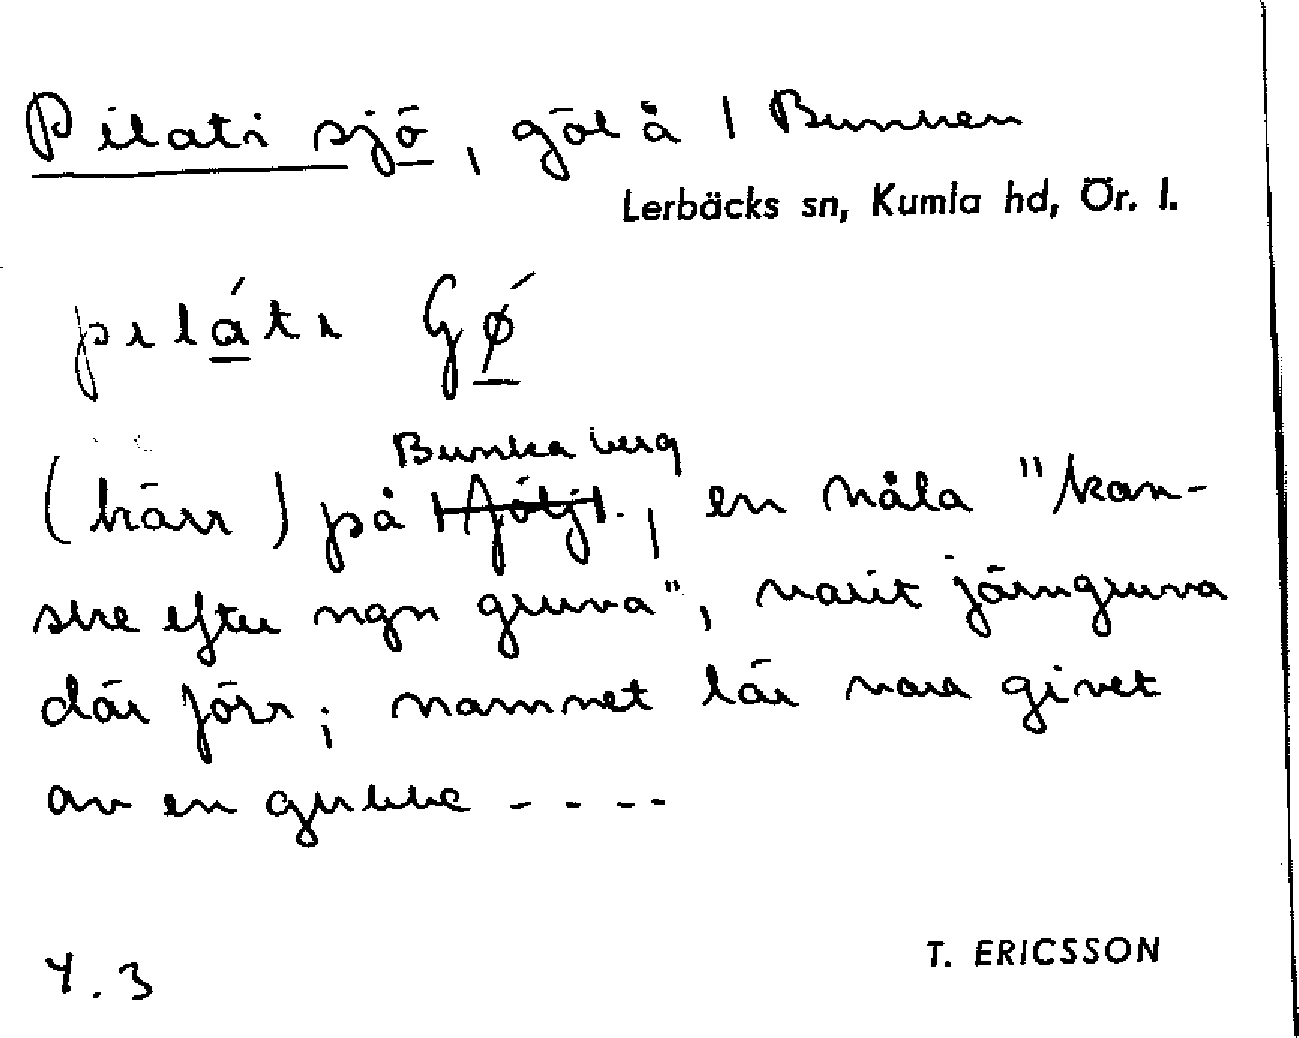 Pilati sjö, göl å 1 Bunken
Lerbäcks sn, Kumla hd, Ör. l.
pıláti
(kärr) på Bunka berg, en håla "kan-
ske efter ngn gruva", varit järngruva
där förr; namnet lär vara givet
av en gubbe - - - -
4.3
T. ERICSSON